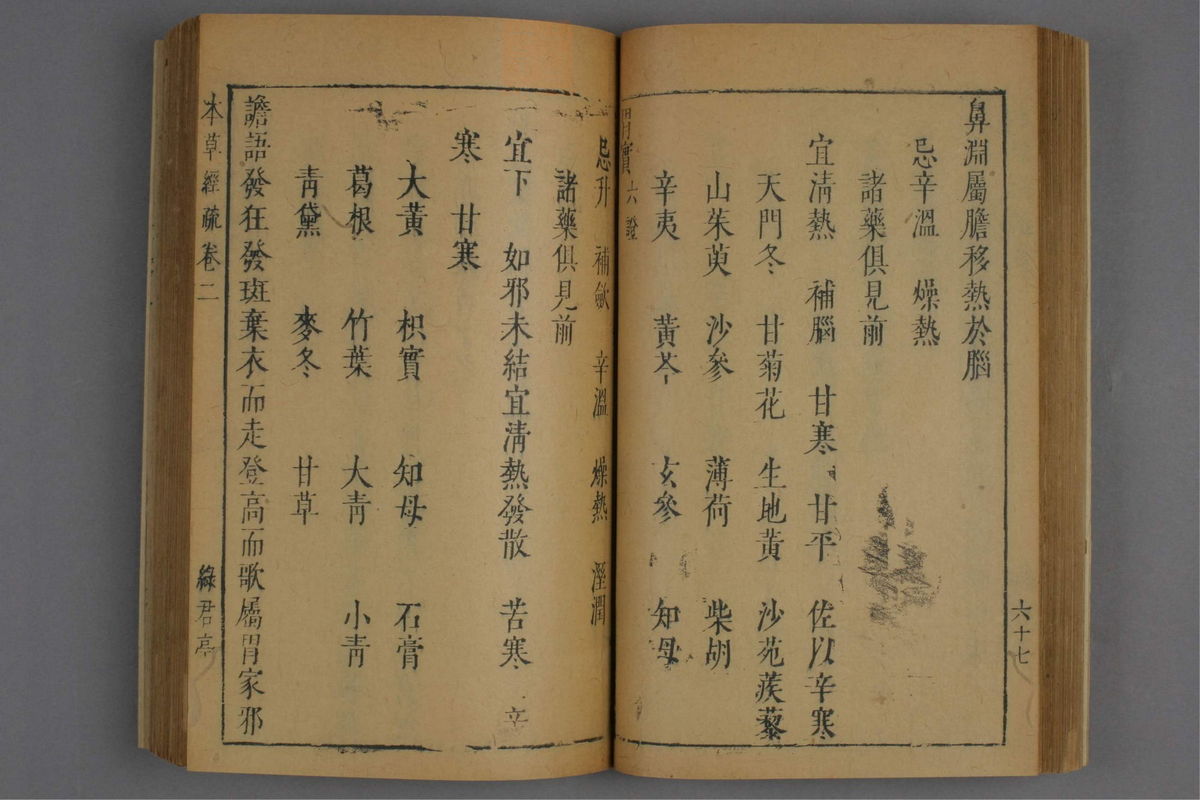 鼻淵屬膽移熱於腦
忌辛溫　燥熱
諸藥俱見前
宜淸熱　補腦　甘寒　甘平　佐以辛寒
天門冬　甘菊花　生地黃　沙苑蒺藜
山茱萸　沙參　薄荷　柴胡
辛夷　黃芩　玄參　知母
胃實六證
六十七
忌升　補斂　辛溫　燥熱　溼潤
諸藥俱見前
宜下　如邪未結宜淸熱發散　苦寒　辛
寒　甘寒
大黃　枳實　知母　石膏
葛根　竹葉　大靑　小靑
靑黛　麥冬　甘草
譫語發狂發斑棄衣而走登高而歌屬胃家邪
本草經疏卷二　綠君亭